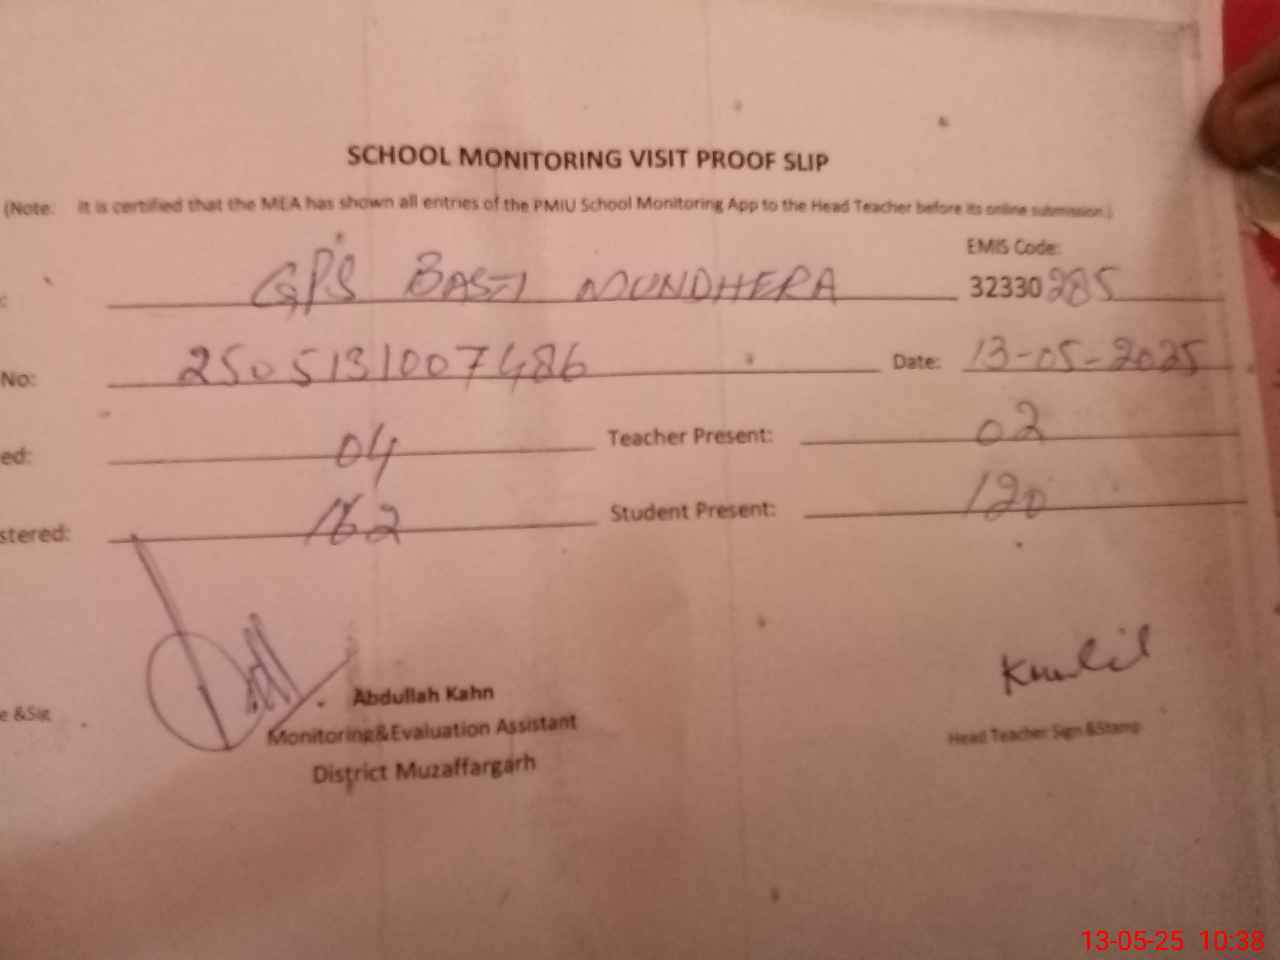 SCHOOL MONITORING VISIT PROOF SLIP
(Note: It is certified that the MEA has shown all entries of the PMIU School Monitoring App to the Head Teacher before its online submission.)
EMIS Code:
: GPS BASTI MUNDHERA 32330285
No: 2505131007486 Date: 13-05-2025
ed: 04 Teacher Present: 02
stered: 162 Student Present: 120
Abdullah Kahn
e &Sig
Monitoring&Evaluation Assistant
Head Teacher Sign &Stamp
District Muzaffargarh
13-05-25 10:38